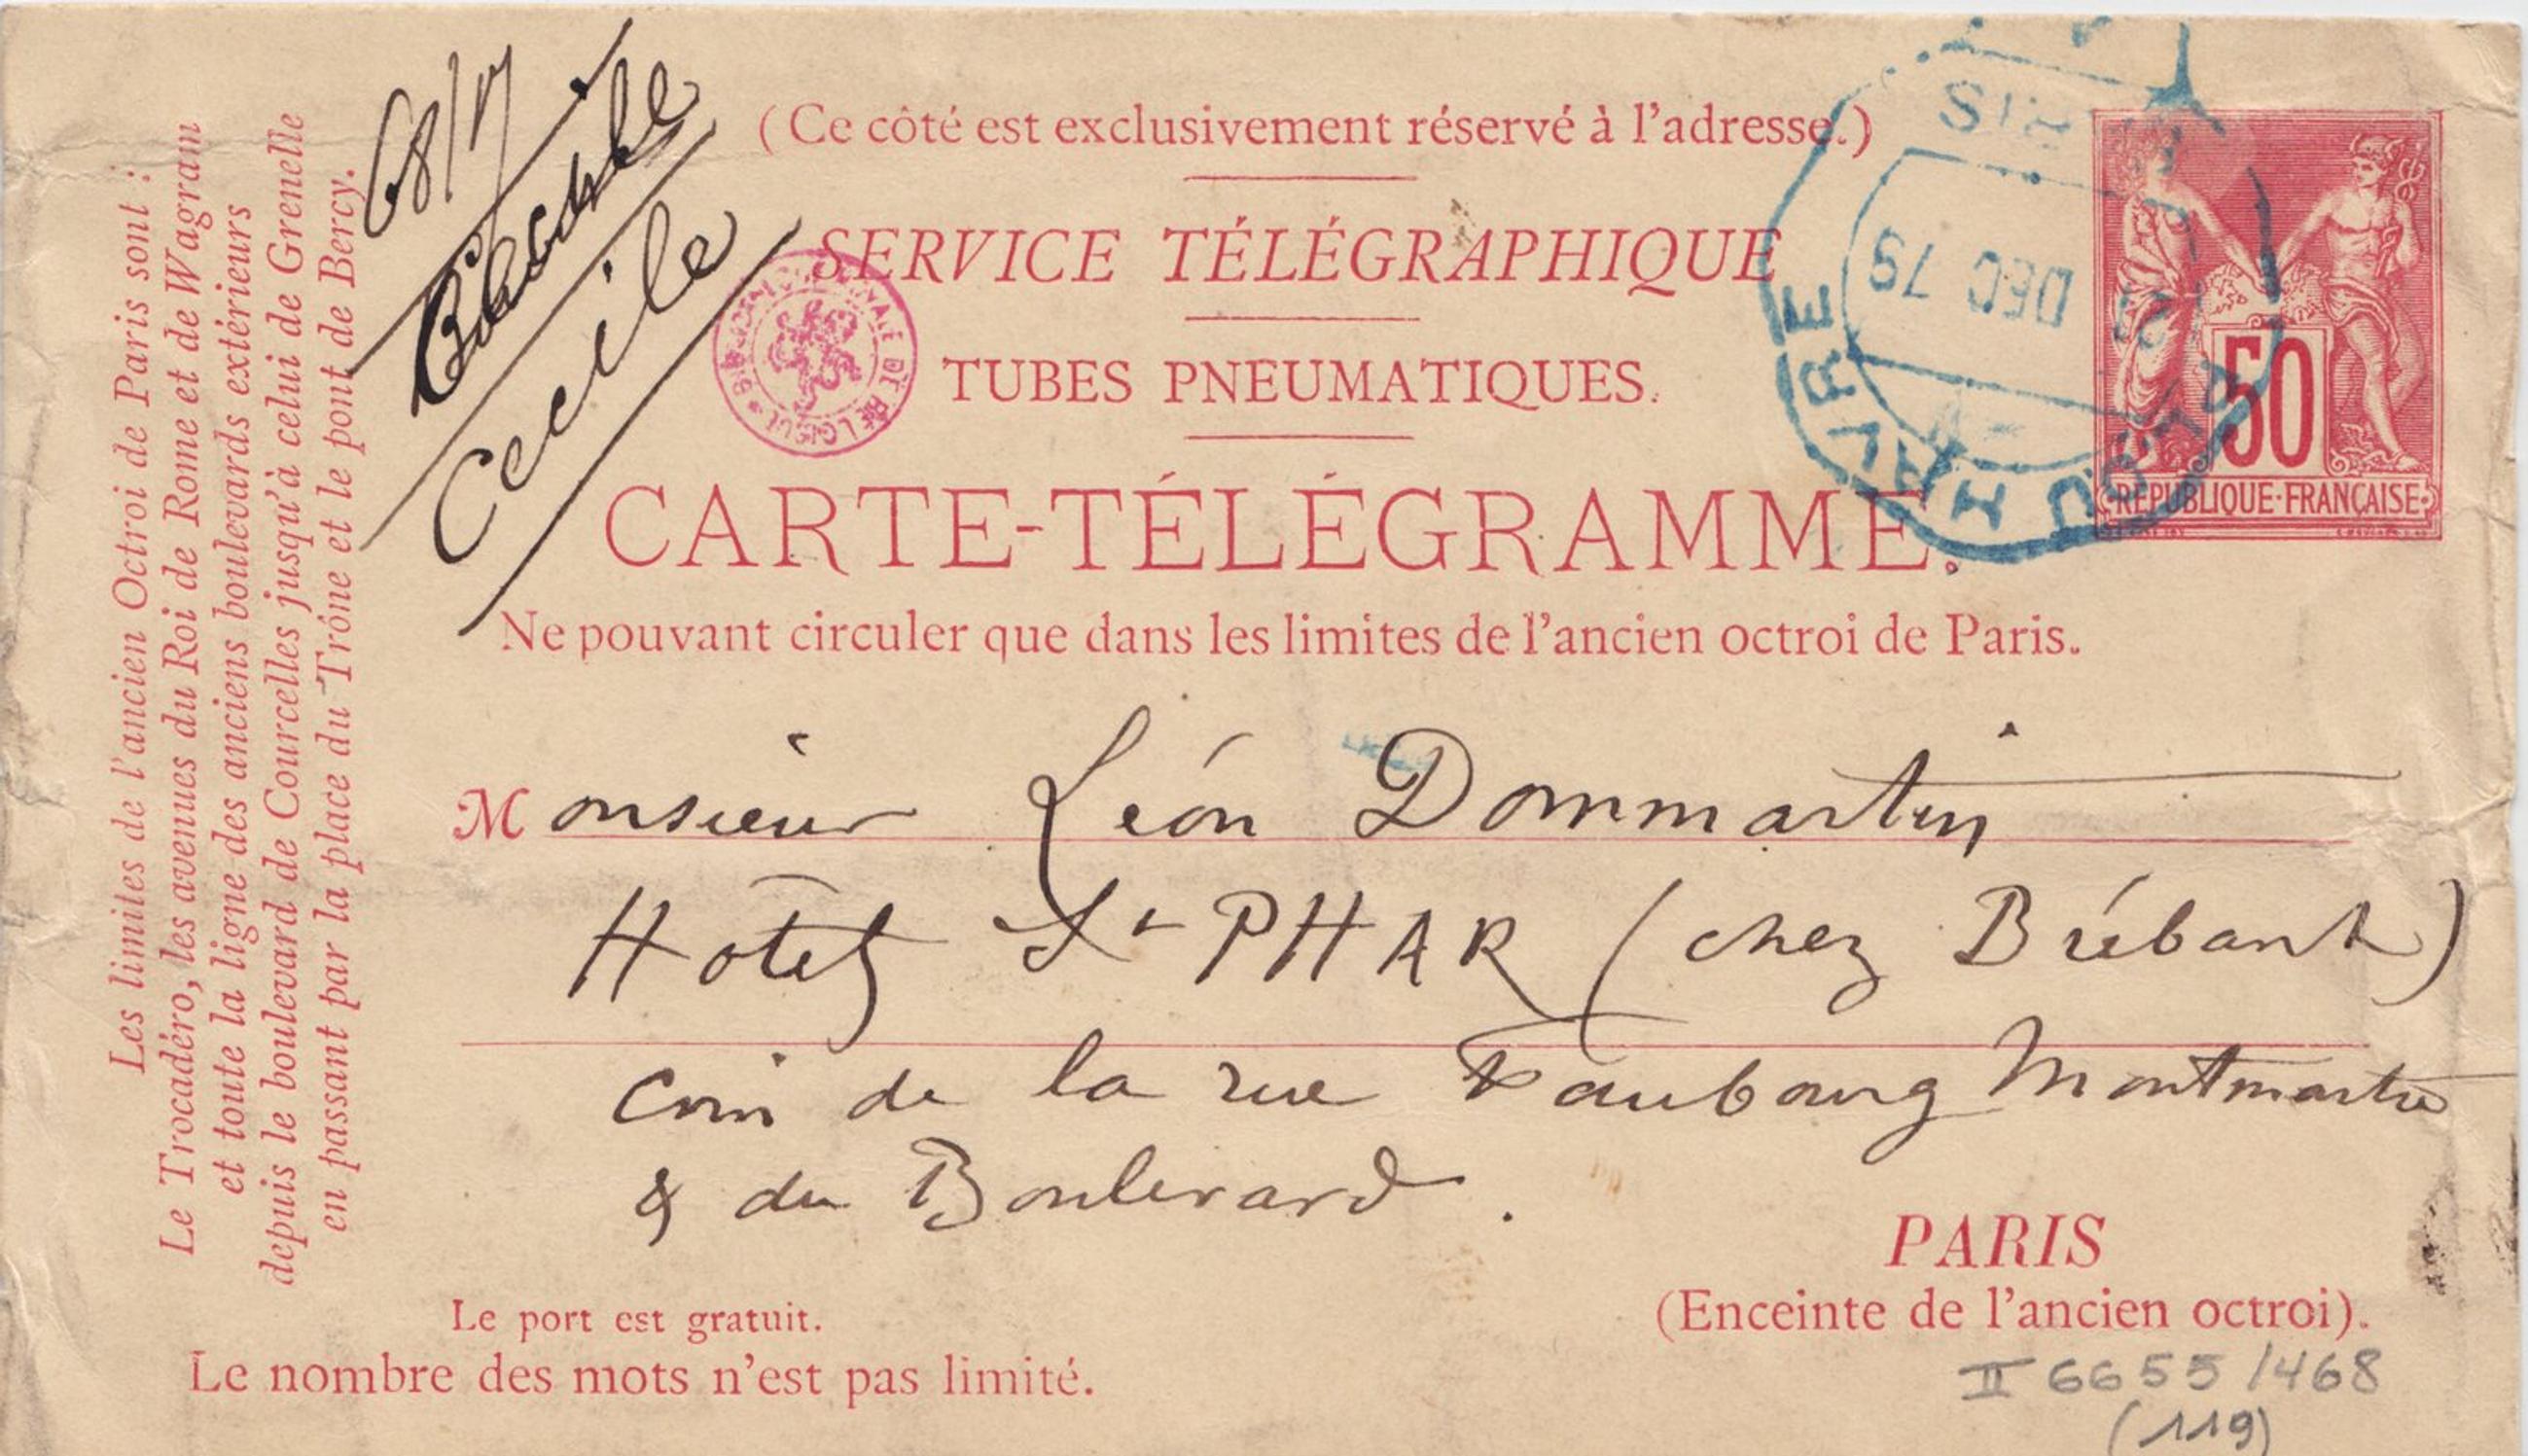 (Ce côté est exclusivement réservé à l'adresse.)
SERVICE TÉLÉGRAPHIQUE
TUBES PNEUMATIQUES.
CARTE-TÉLÉGRAMME.
Ne pouvant circuler que dans les limites de l'ancien octroi de Paris.
50
REPUBLIQUE·FRANÇAISE
DEC 79
HAVRE
68/
Cecile
Les limites de l'ancien Octroi de Paris sont :
Le Trocadéro, les avenues du Roi de Rome et de Wagram
et toute la ligne des anciens boulevards extérieurs
depuis le boulevard de Courcelles jusqu'à celui de Grenelle
en passant par la place du Trône et le pont de Bercy.
Monsieur Léon Dommartin
Hôtel St PHAR (chez Brébant)
coin de la rue Faubourg Montmartre
& du Boulevard.
PARIS
(Enceinte de l'ancien octroi).
Le port est gratuit.
Le nombre des mots n'est pas limité.
II 6655/468
(119)